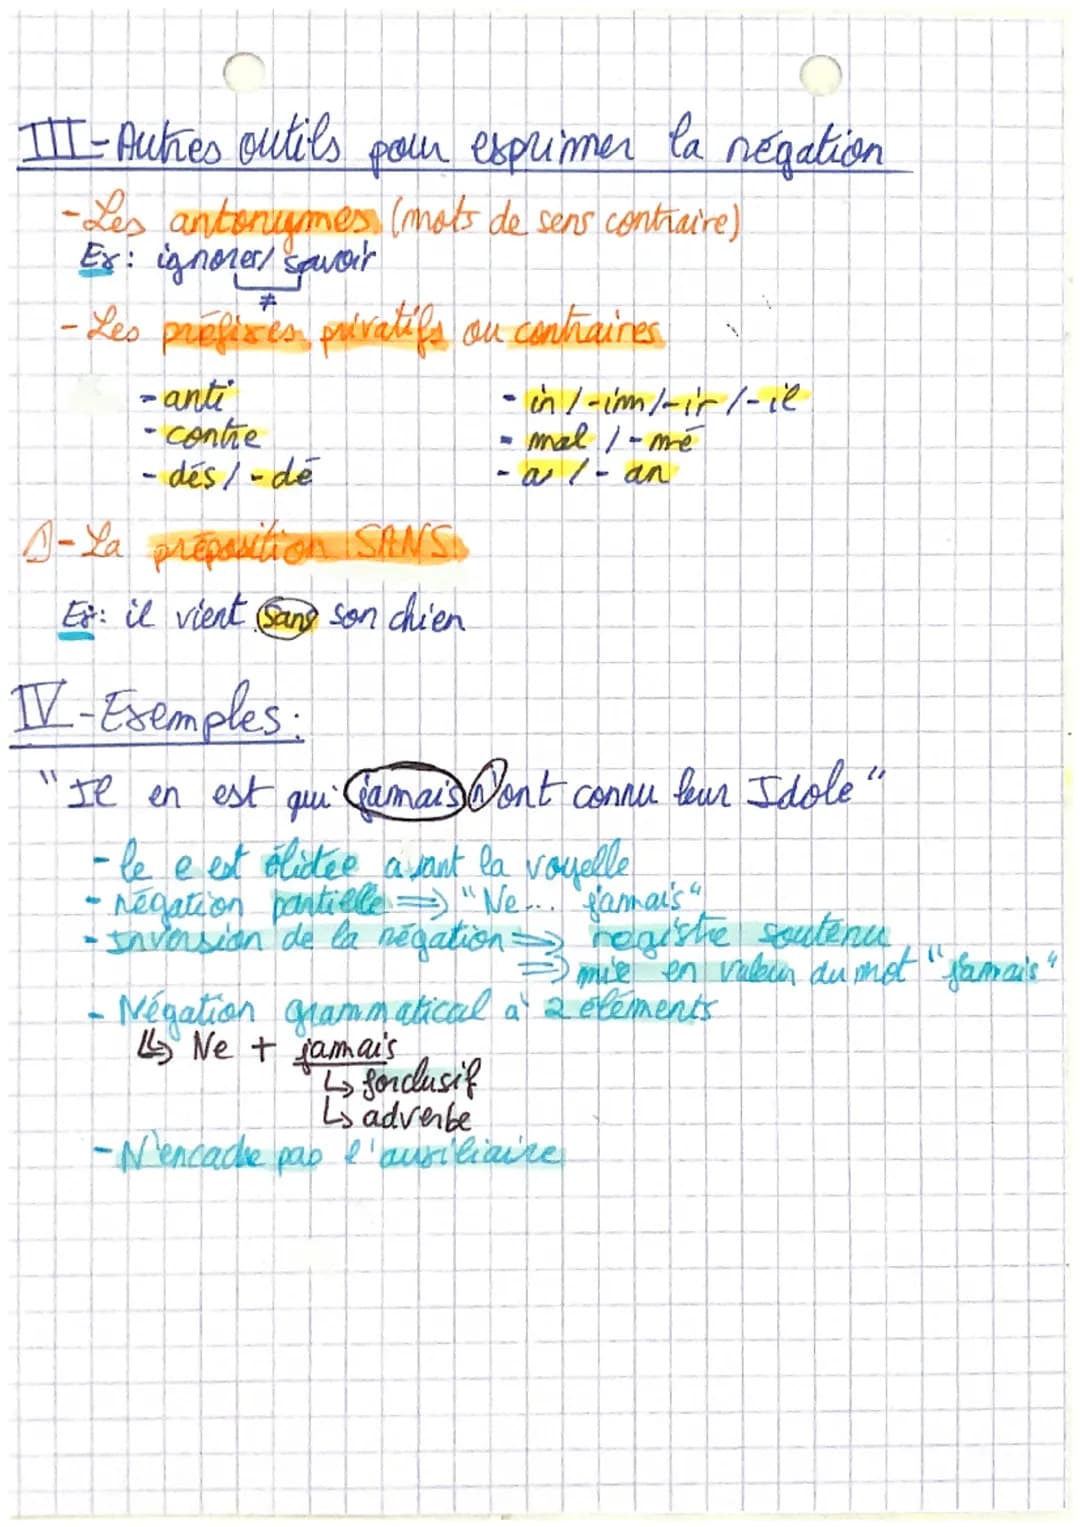 III - Autres outils pour esprimer la négation
- Les antonymes (mots de sens contraire)
Ex : ignorer / savoir
≠
- Les préfixes privatifs ou contraires
- anti
- contre
- dés / - dé
- in / - im / - ir / - il
- mal / - mé
- a / - an
1 - La préposition SANS
Ex : il vient sans son chien
IV - Exemples :
"Il en est qui jamais n'ont connu leur Idole"
- le e est élidée avant la voyelle
- négation partielle ⇒ "Ne... jamais"
- Inversion de la négation ⇒ registre soutenu
⇒ mise en valeur du mot "jamais"
- Négation grammatical à 2 éléments
↳ Ne + jamais
↳ forclusif
↳ adverbe
- N'encadre pas l'auxiliaire